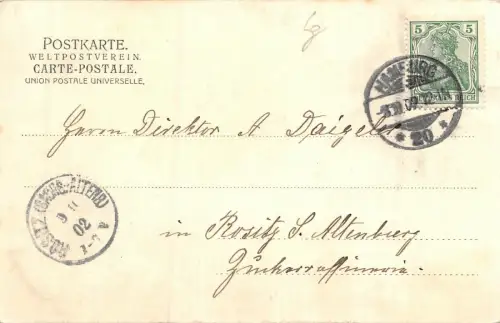 POSTKARTE.
WELTPOSTVEREIN.
CARTE-POSTALE.
UNION POSTALE UNIVERSELLE.
5 5
HAMBURG
* 20 *
Herrn Direktor A Daigeler
ROSITZ (SACHS.-ALTENB)
9 11
02
7-8 V
in Rositz S. Altenburg
Zuckerraffinerie.